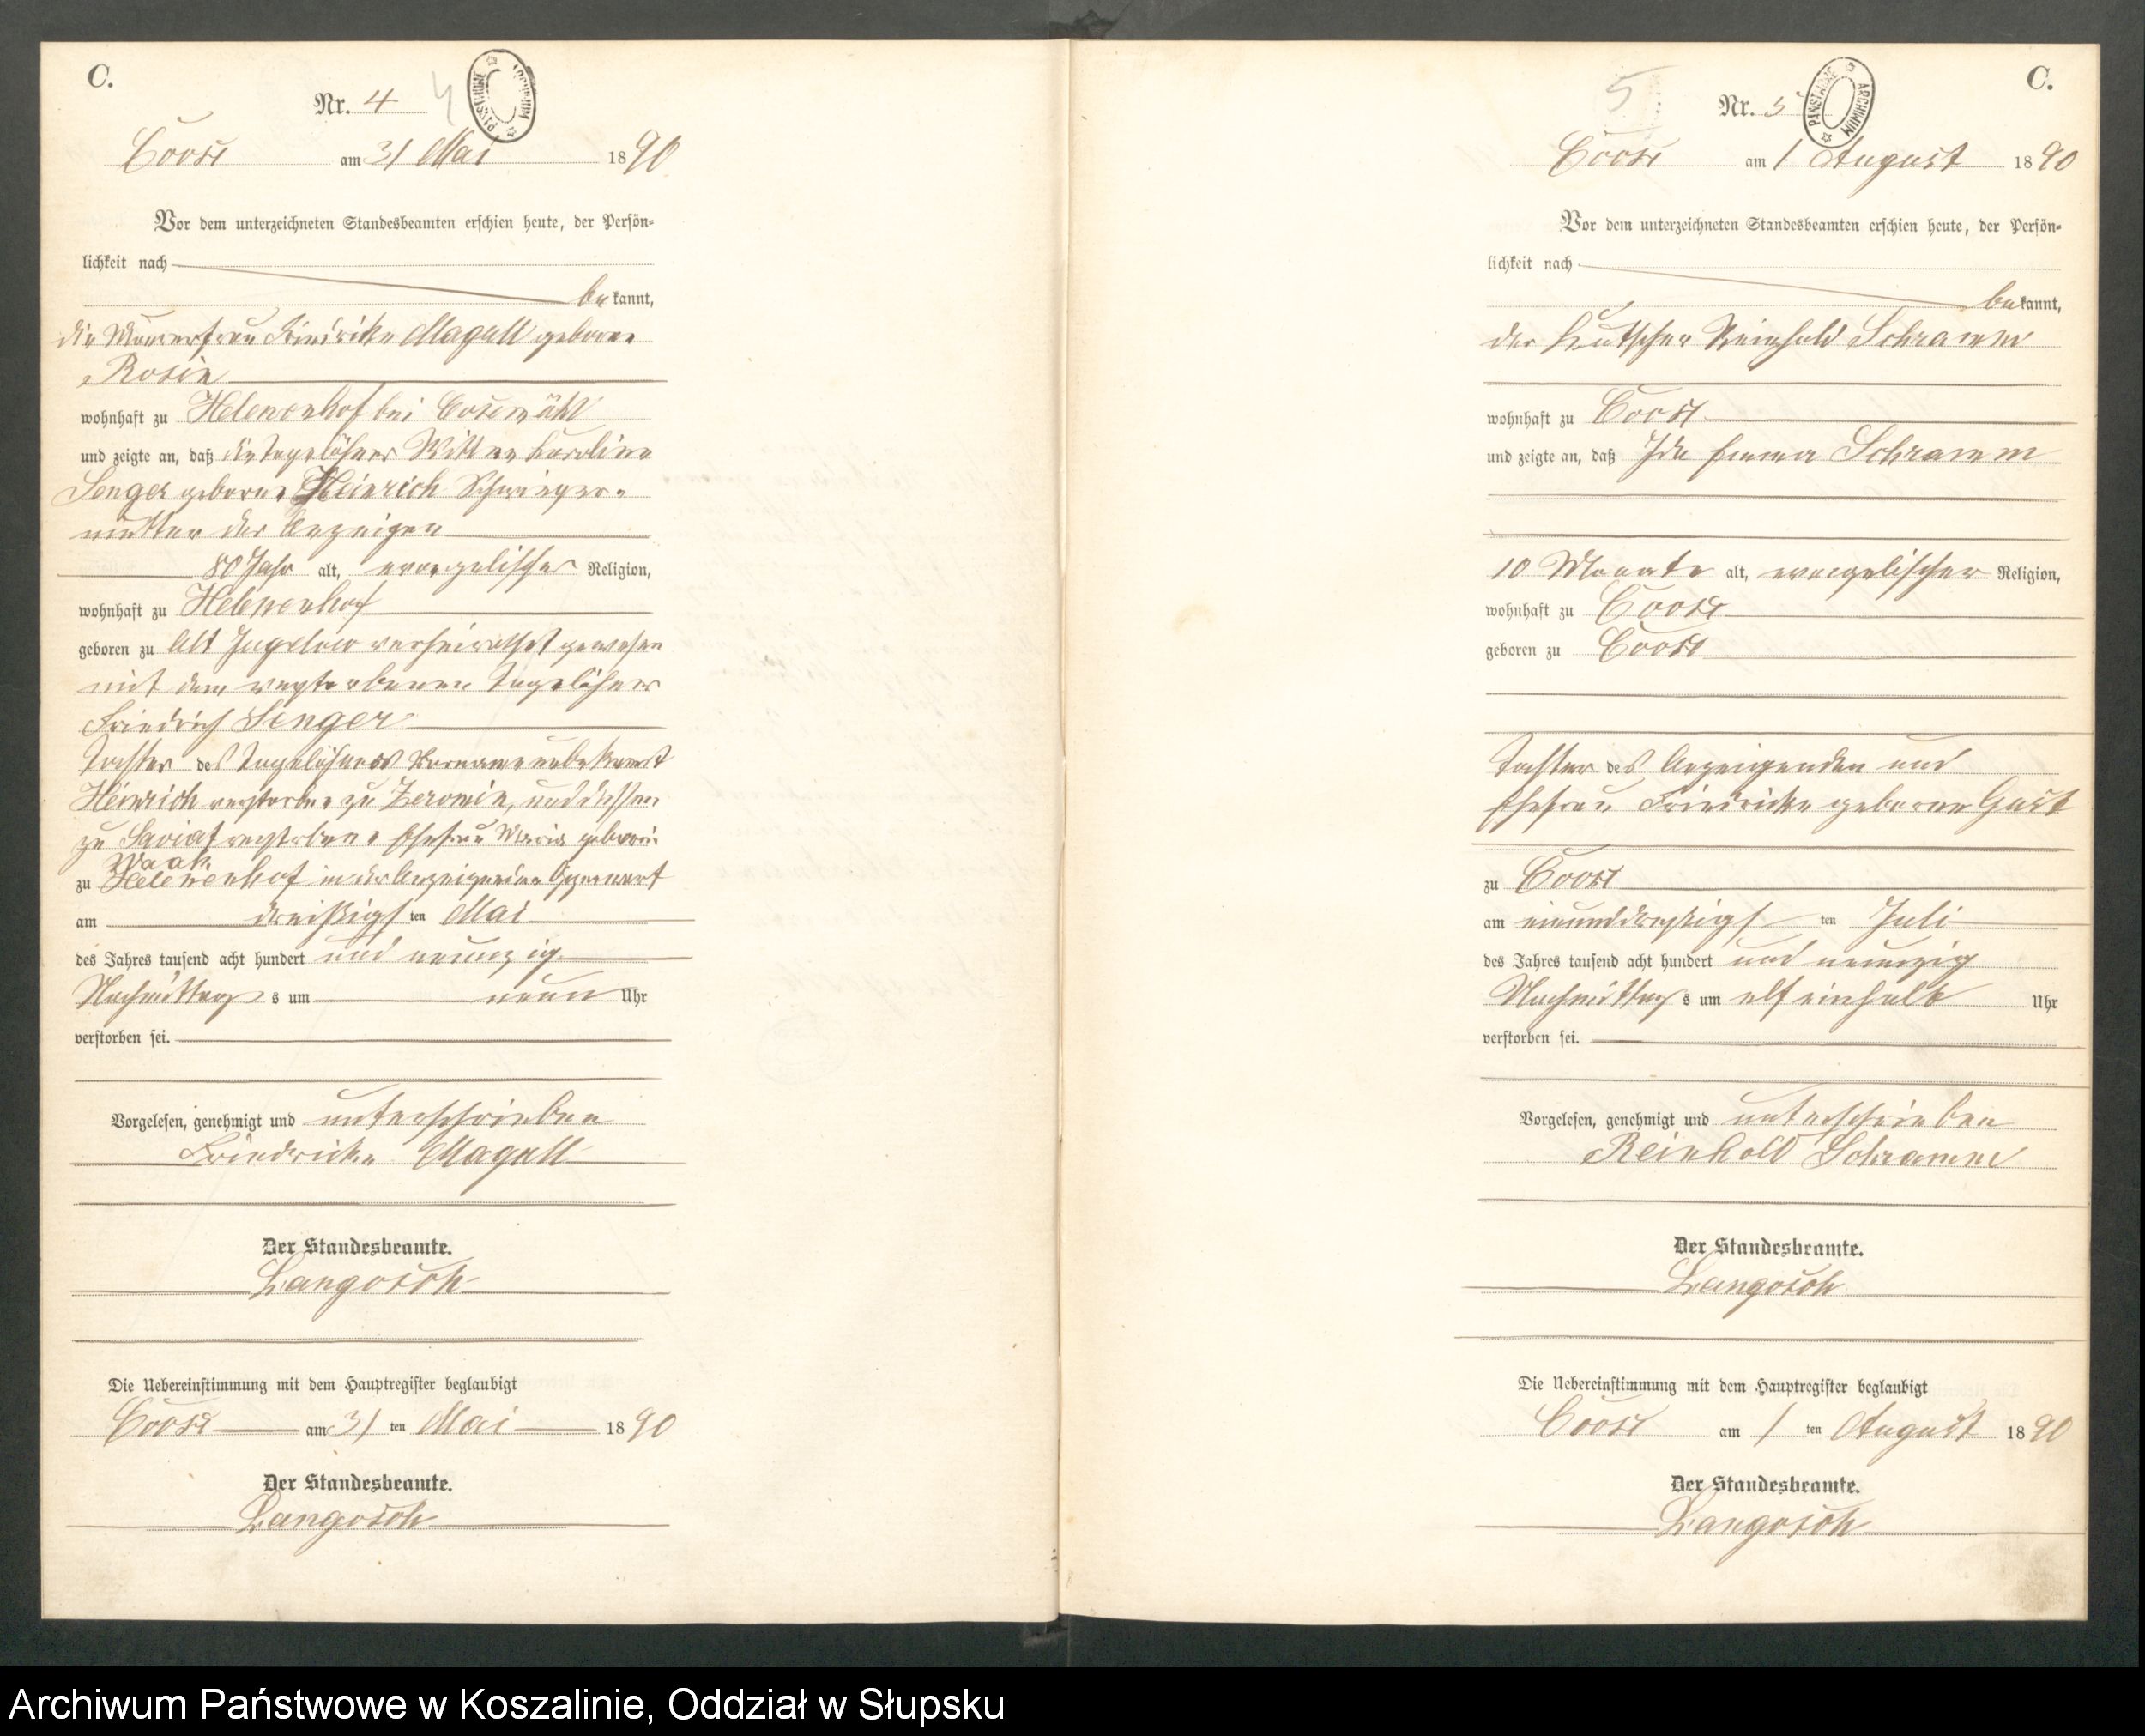 C.
Nr. 4
4
PAŃSTWOWE ARCHIWUM
Coose am 31 Mai 1890
Vor dem unterzeichneten Standesbeamten erschien heute, der Persön-
lichkeit nach
bekannt,
die Maurerfrau Friedricke Magull geborne
Rosin
wohnhaft zu Helenenhof bei Cosemühl
und zeigte an, daß die Tagelöhner Wittwe Karoline
Senger geborne Heinrich Schwieger-
mutter der Anzeigen
80 Jahr alt, evangelischer Religion,
wohnhaft zu Helenenhof
geboren zu Alt Jugelow verheirathet gewesen
mit dem verstorbenen Tagelöhner
Friedrich Senger
Tochter des Tagelöhners Vorname unbekannt
Heinrich verstorben zu Zeromin, und dessen
zu Saviat verstorbene Ehefrau Maria geboren
Waak
zu Helenenhof in der Anzeigenden Gegenwart
am dreißigsten Mai
des Jahres tausend acht hundert und neunzig
Nachmittags um neun Uhr
verstorben sei.
Vorgelesen, genehmigt und unterschrieben
Friedricke Magull
Der Standesbeamte.
Langosch
Die Uebereinstimmung mit dem Hauptregister beglaubigt
Coose am 31 ten Mai 1890
Der Standesbeamte.
Langosch
C.
5
Nr. 5
PAŃSTWOWE ARCHIWUM
Coose am 1 August 1890
Vor dem unterzeichneten Standesbeamten erschien heute, der Persön-
lichkeit nach
bekannt,
der Kutscher Reinhold Schramm
wohnhaft zu Coose
und zeigte an, daß Ida Emma Schramm
10 Monate alt, evangelischer Religion,
wohnhaft zu Coose
geboren zu Coose
Tochter des Anzeigenden und
Ehefrau Friedricke geborene Gast
zu Coose
am einunddreißigsten Juli
des Jahres tausend acht hundert und neunzig
Nachmittags um elf einhalb Uhr
verstorben sei.
Vorgelesen, genehmigt und unterschrieben
Reinhold Schramm
Der Standesbeamte.
Langosch
Die Uebereinstimmung mit dem Hauptregister beglaubigt
Coose am 1 ten August 1890
Der Standesbeamte.
Langosch
Archiwum Państwowe w Koszalinie, Oddział w Słupsku